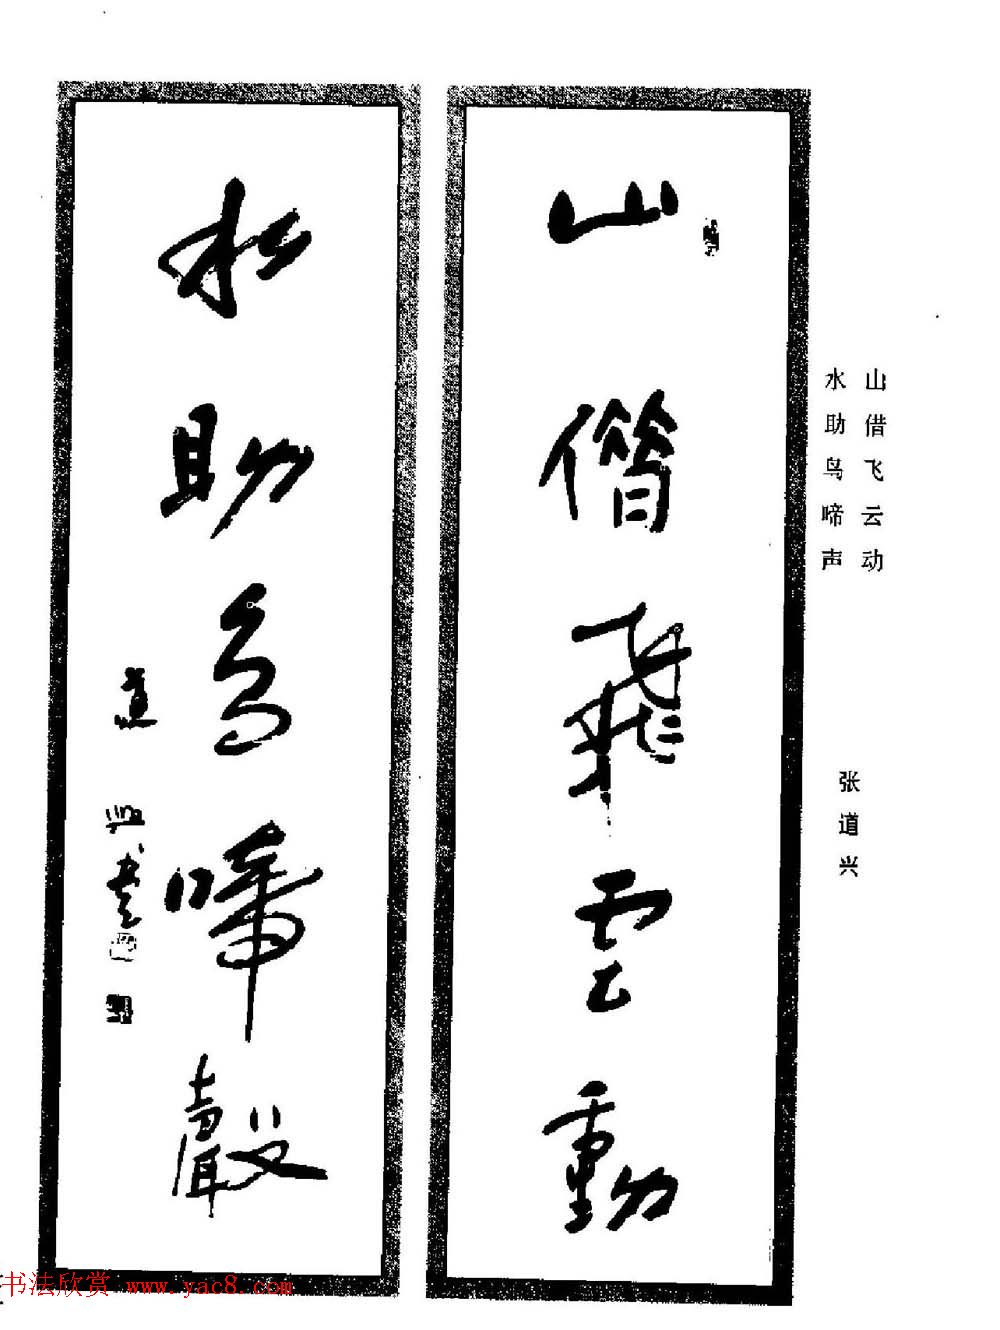 山借飛雲動
松助鳥啼聲
道興書
山借飞云动
水助鸟啼声
张道兴
书法欣赏 www.yac8.com